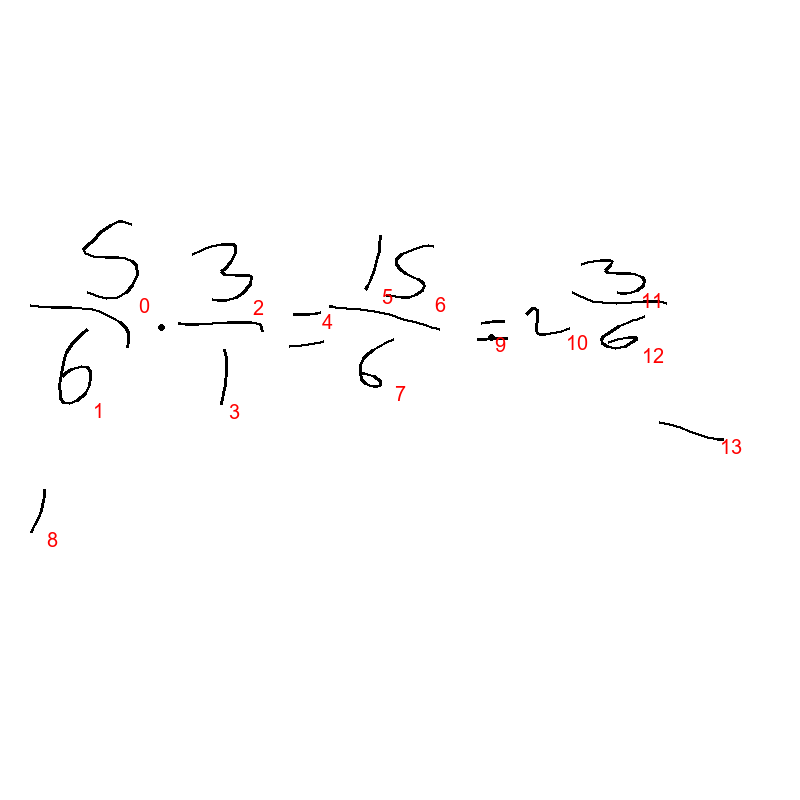 5/6 · 3/1 = 15/6 = 2 3/6
0 1 2 3 4 5 6 7 9 10 11 12
13
8